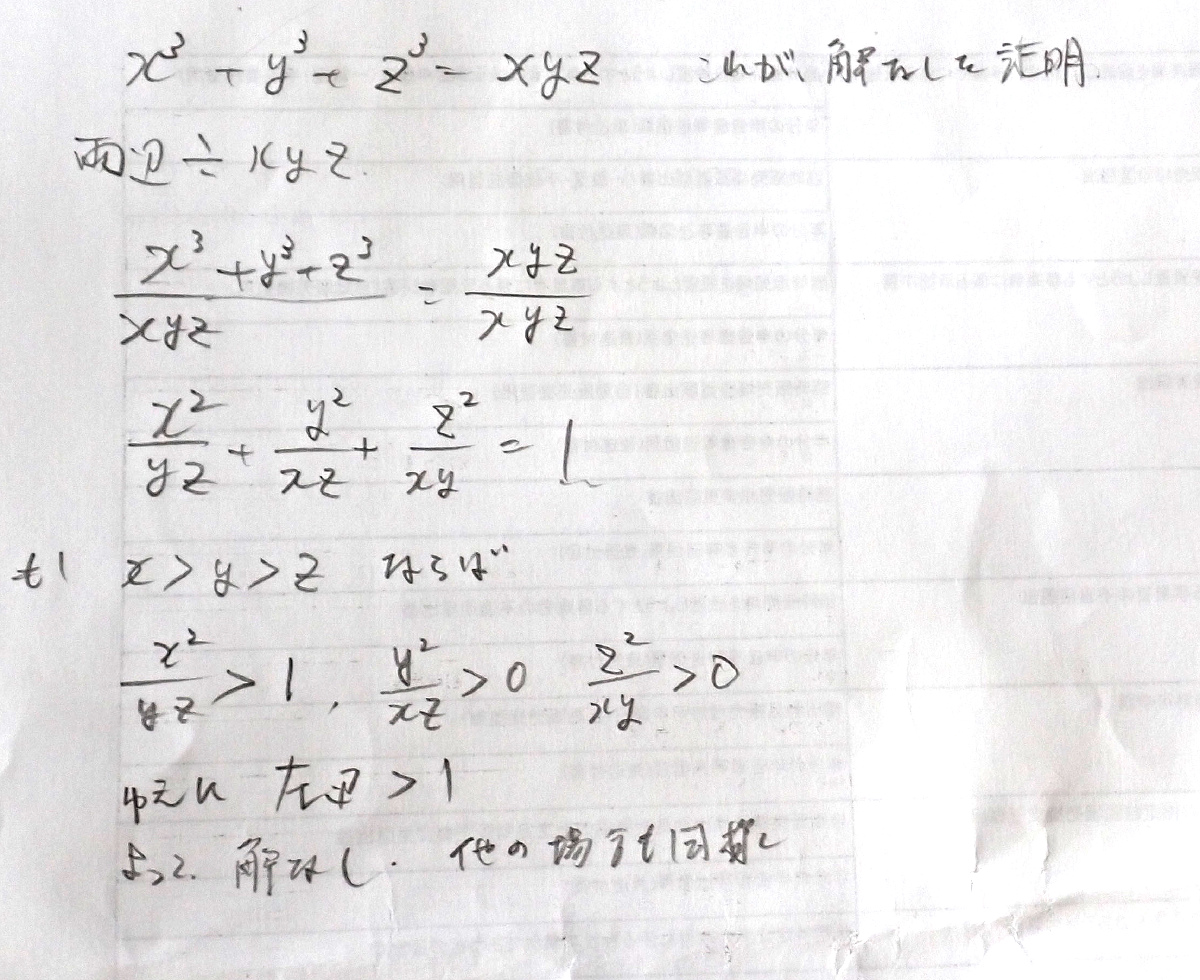 x³ + y³ + z³ = xyz これが解なしを証明
両辺 ÷ xyz.
(x³ + y³ + z³)/(xyz) = (xyz)/(xyz)
x²/(yz) + y²/(xz) + z²/(xy) = 1
もし x > y > z ならば
x²/(yz) > 1, y²/(xz) > 0 z²/(xy) > 0
ゆえに 左辺 > 1
よって. 解なし. 他の場合も同様に